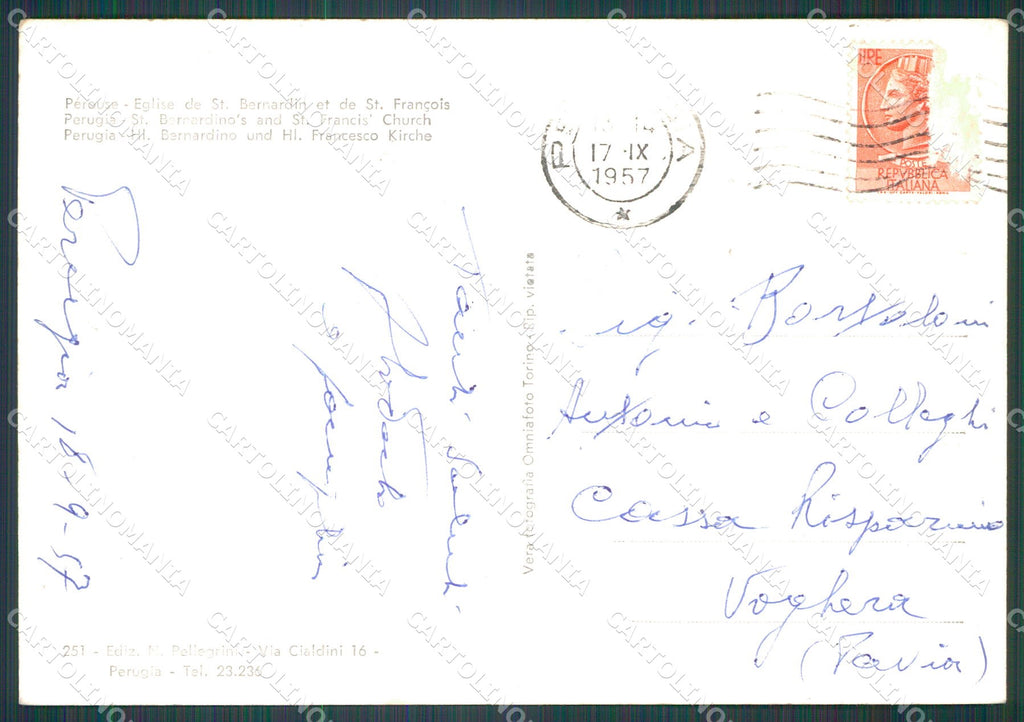 Pérouse - Eglise de St. Bernardin et de St. François
Perugia - St. Bernardino's and St. Francis' Church
Perugia - Hl. Bernardino und Hl. Francesco Kirche
17 · IX
1957
LIRE
POSTE
REPVBBLICA
ITALIANA
Perugia 18-9-57
e famiglia
Vera fotografia Omniafoto Torino - Rip. vietata
ig. Bortoloni
Antonio e Colleghi
Cassa Risparmio
Voghera
(Pavia)
251 - Ediz. N. Pellegrini - Via Cialdini 16 -
Perugia - Tel. 23.236
CARTOLINOMANIA